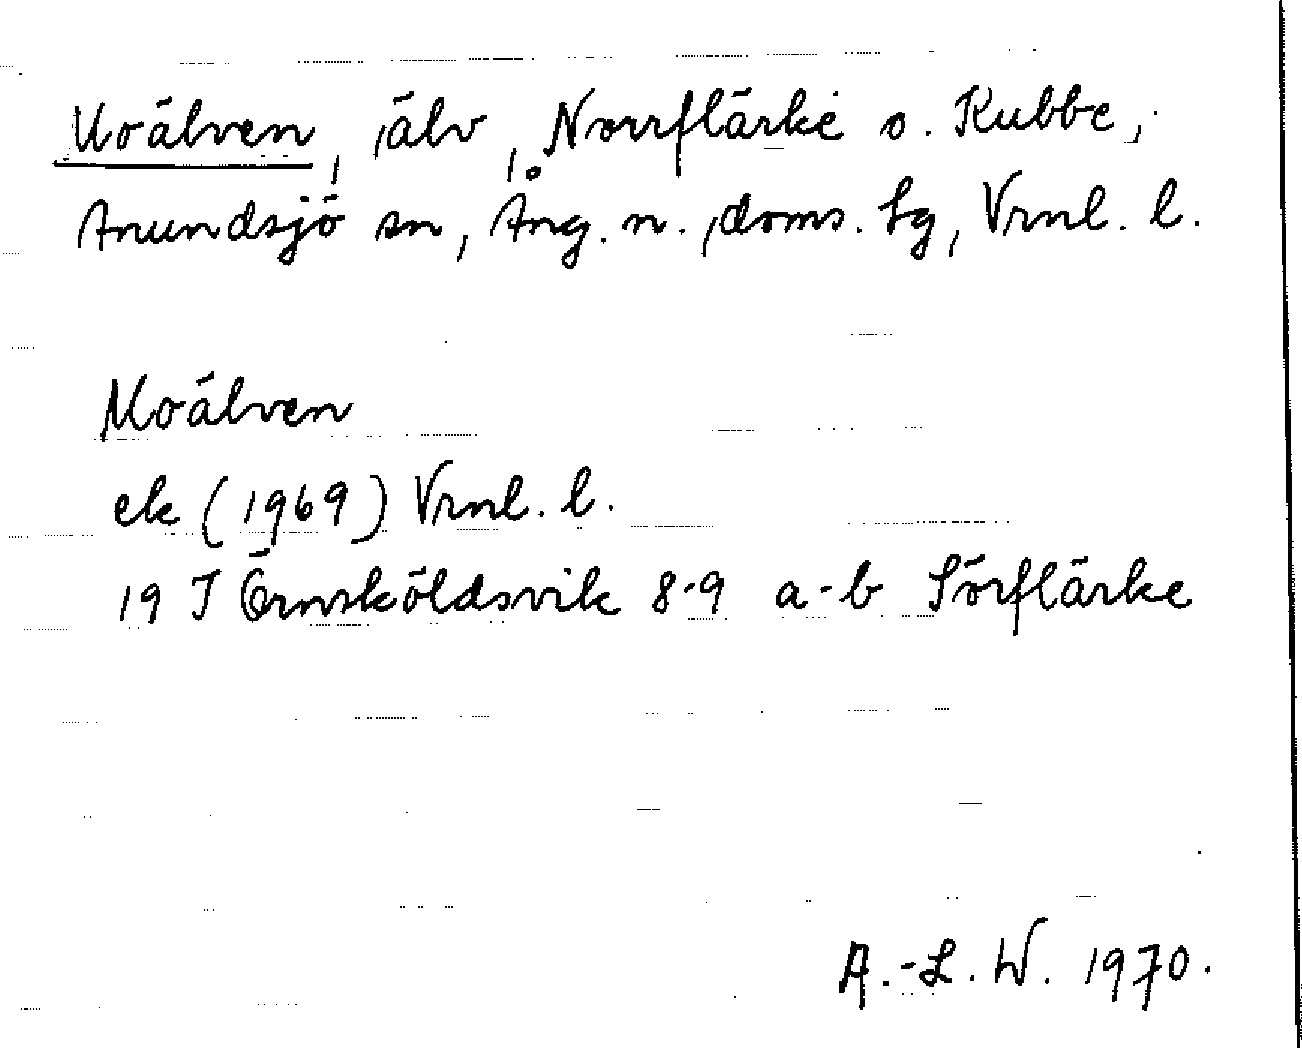 Moälven, älv, Norrflärke o. Kubbe,
Anundsjö sn, Ång. n. doms. tg, Vrnl. l.
Moälven
ek (1969) Vrnl. l.
19 I Örnsköldsvik 8-9 a-b Sörflärke
A.-L. W. 1970.